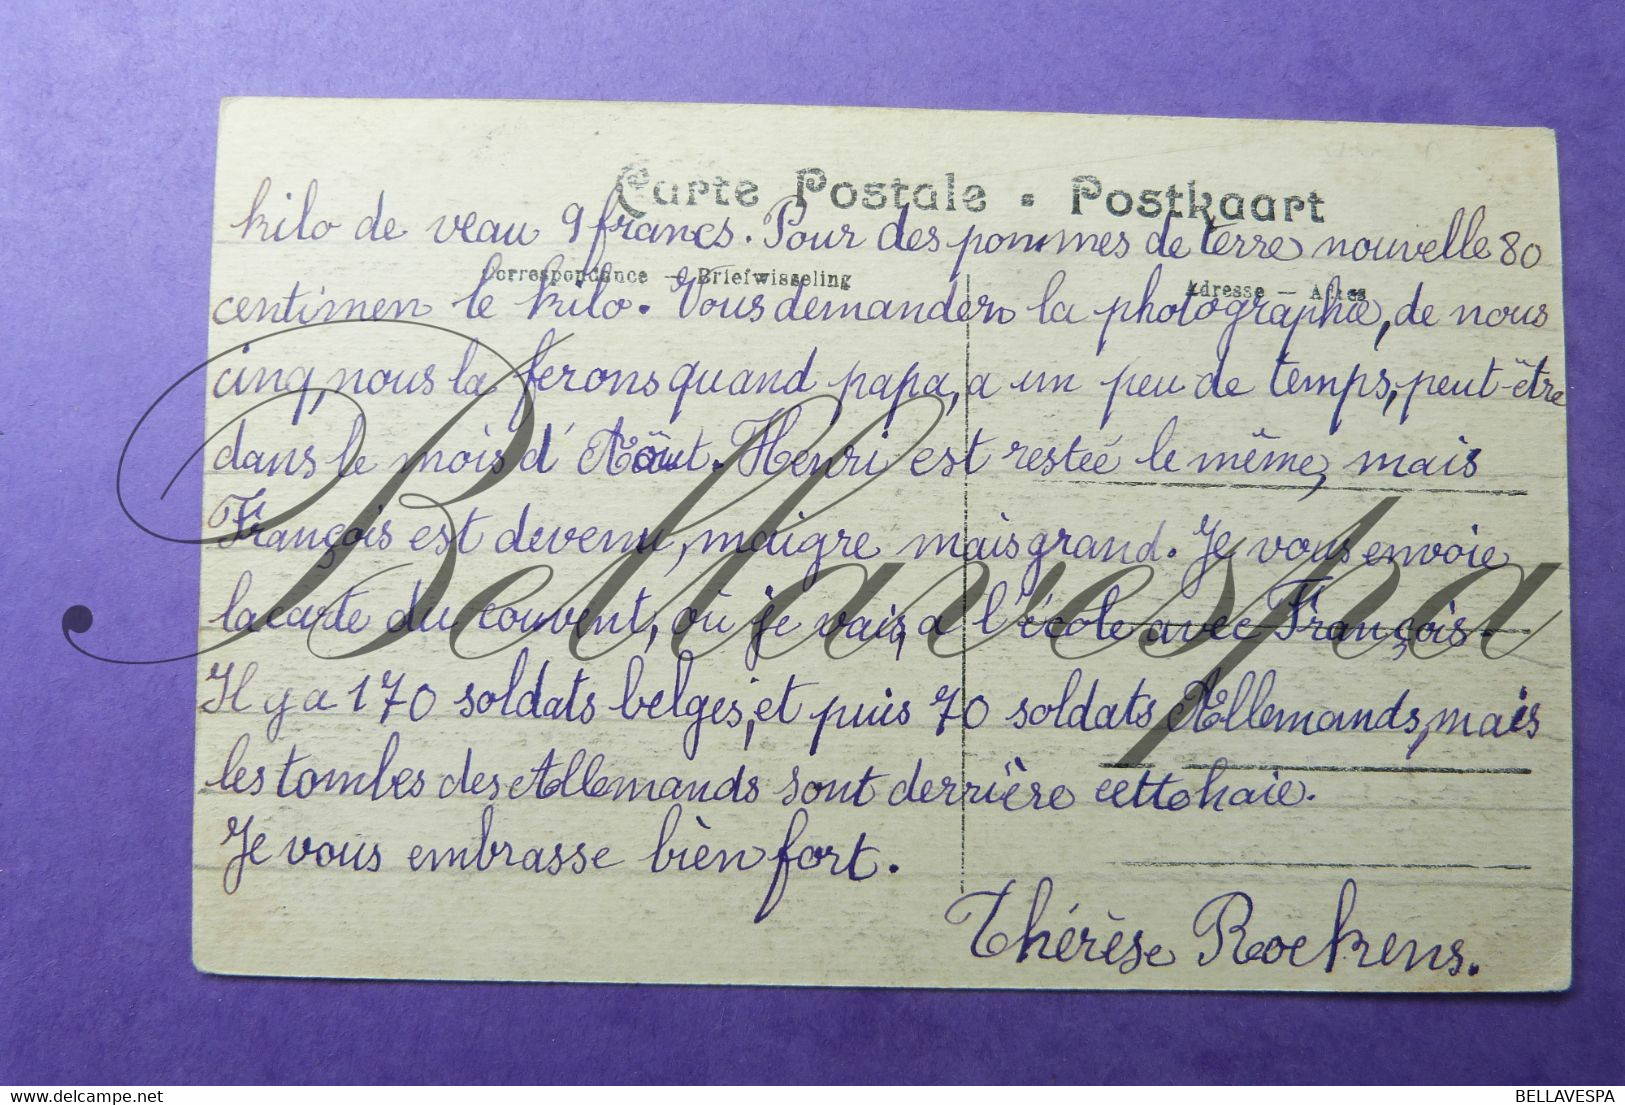 Carte Postale • Postkaart
kilo de veau 9 francs. Pour des pommes de terre nouvelle 80
Correspondance — Briefwisseling
Adresse — Adres
centimen le kilo. Vous demanden la photographie, de nous
cinq, nous la ferons quand papa, a un peu de temps, peut-être
dans le mois d' Aôut. Henri est restée le même, mais
François est devenu, maigre mais grand. Je vous envoie
la carte du couvent, où je vais, a l'école avec François.
Il y a 170 soldats belges, et puis 70 soldats Allemands, mais
les tombes des Allemands sont derrière cette haie.
Je vous embrasse bien fort.
Thérèse Roekens.
Bellavespa
BELLAVESPA